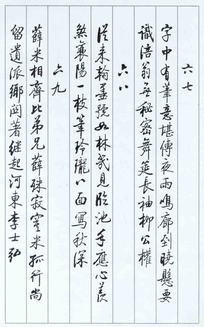 六七
字中有筆意堪傳夜雨鳴廊到曉懸要
識涪翁無秘密舞筵長袖柳公權
六八
從來翰墨號如林幾見臨池手應心羨
煞襄陽一枝筆玲瓏八面寫秋深
六九
薛米相齊比弟兄薛殊寂寞米孤行尚
留遺派鄉關著繼起河東李士弘